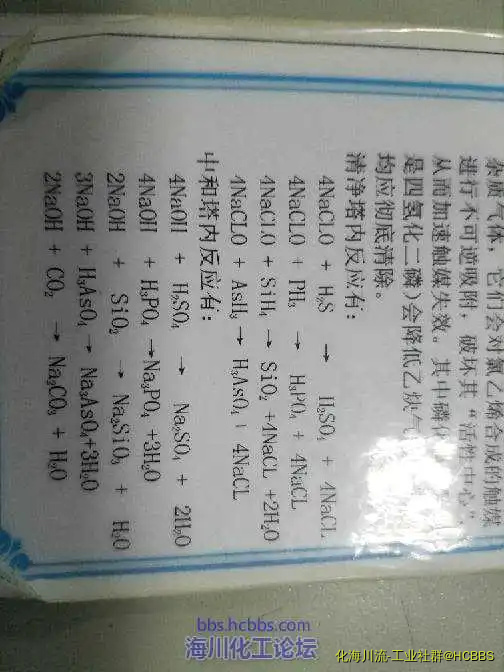 杂质气体，它们会对氯乙烯合成的触媒
进行不可逆吸附，破坏其“活性中心”
从而加速触媒失效。其中磷化
是四氢化二磷）会降低乙炔气
均应彻底清除。
清净塔内反应有：
4NaCLO + H₂S → H₂SO₄ + 4NaCL
4NaCLO + PH₃ → H₃PO₄ + 4NaCL
4NaCLO + SiH₄ → SiO₂ +4NaCL +2H₂O
4NaCLO + AsH₃→ H₃AsO₄ + 4NaCL
中和塔内反应有：
4NaOH + H₂SO₄ → Na₂SO₄ + 2H₂O
4NaOH + H₃PO₄ →Na₃PO₄ +3H₂O
2NaOH + SiO₂ → Na₂SiO₃ + H₂O
3NaOH + H₃AsO₄→ Na₃AsO₄+3H₂O
2NaOH + CO₂ → Na₂CO₃ + H₂O
bbs.hcbbs.com
海川化工论坛
化海川流-工业社群@HCBBS